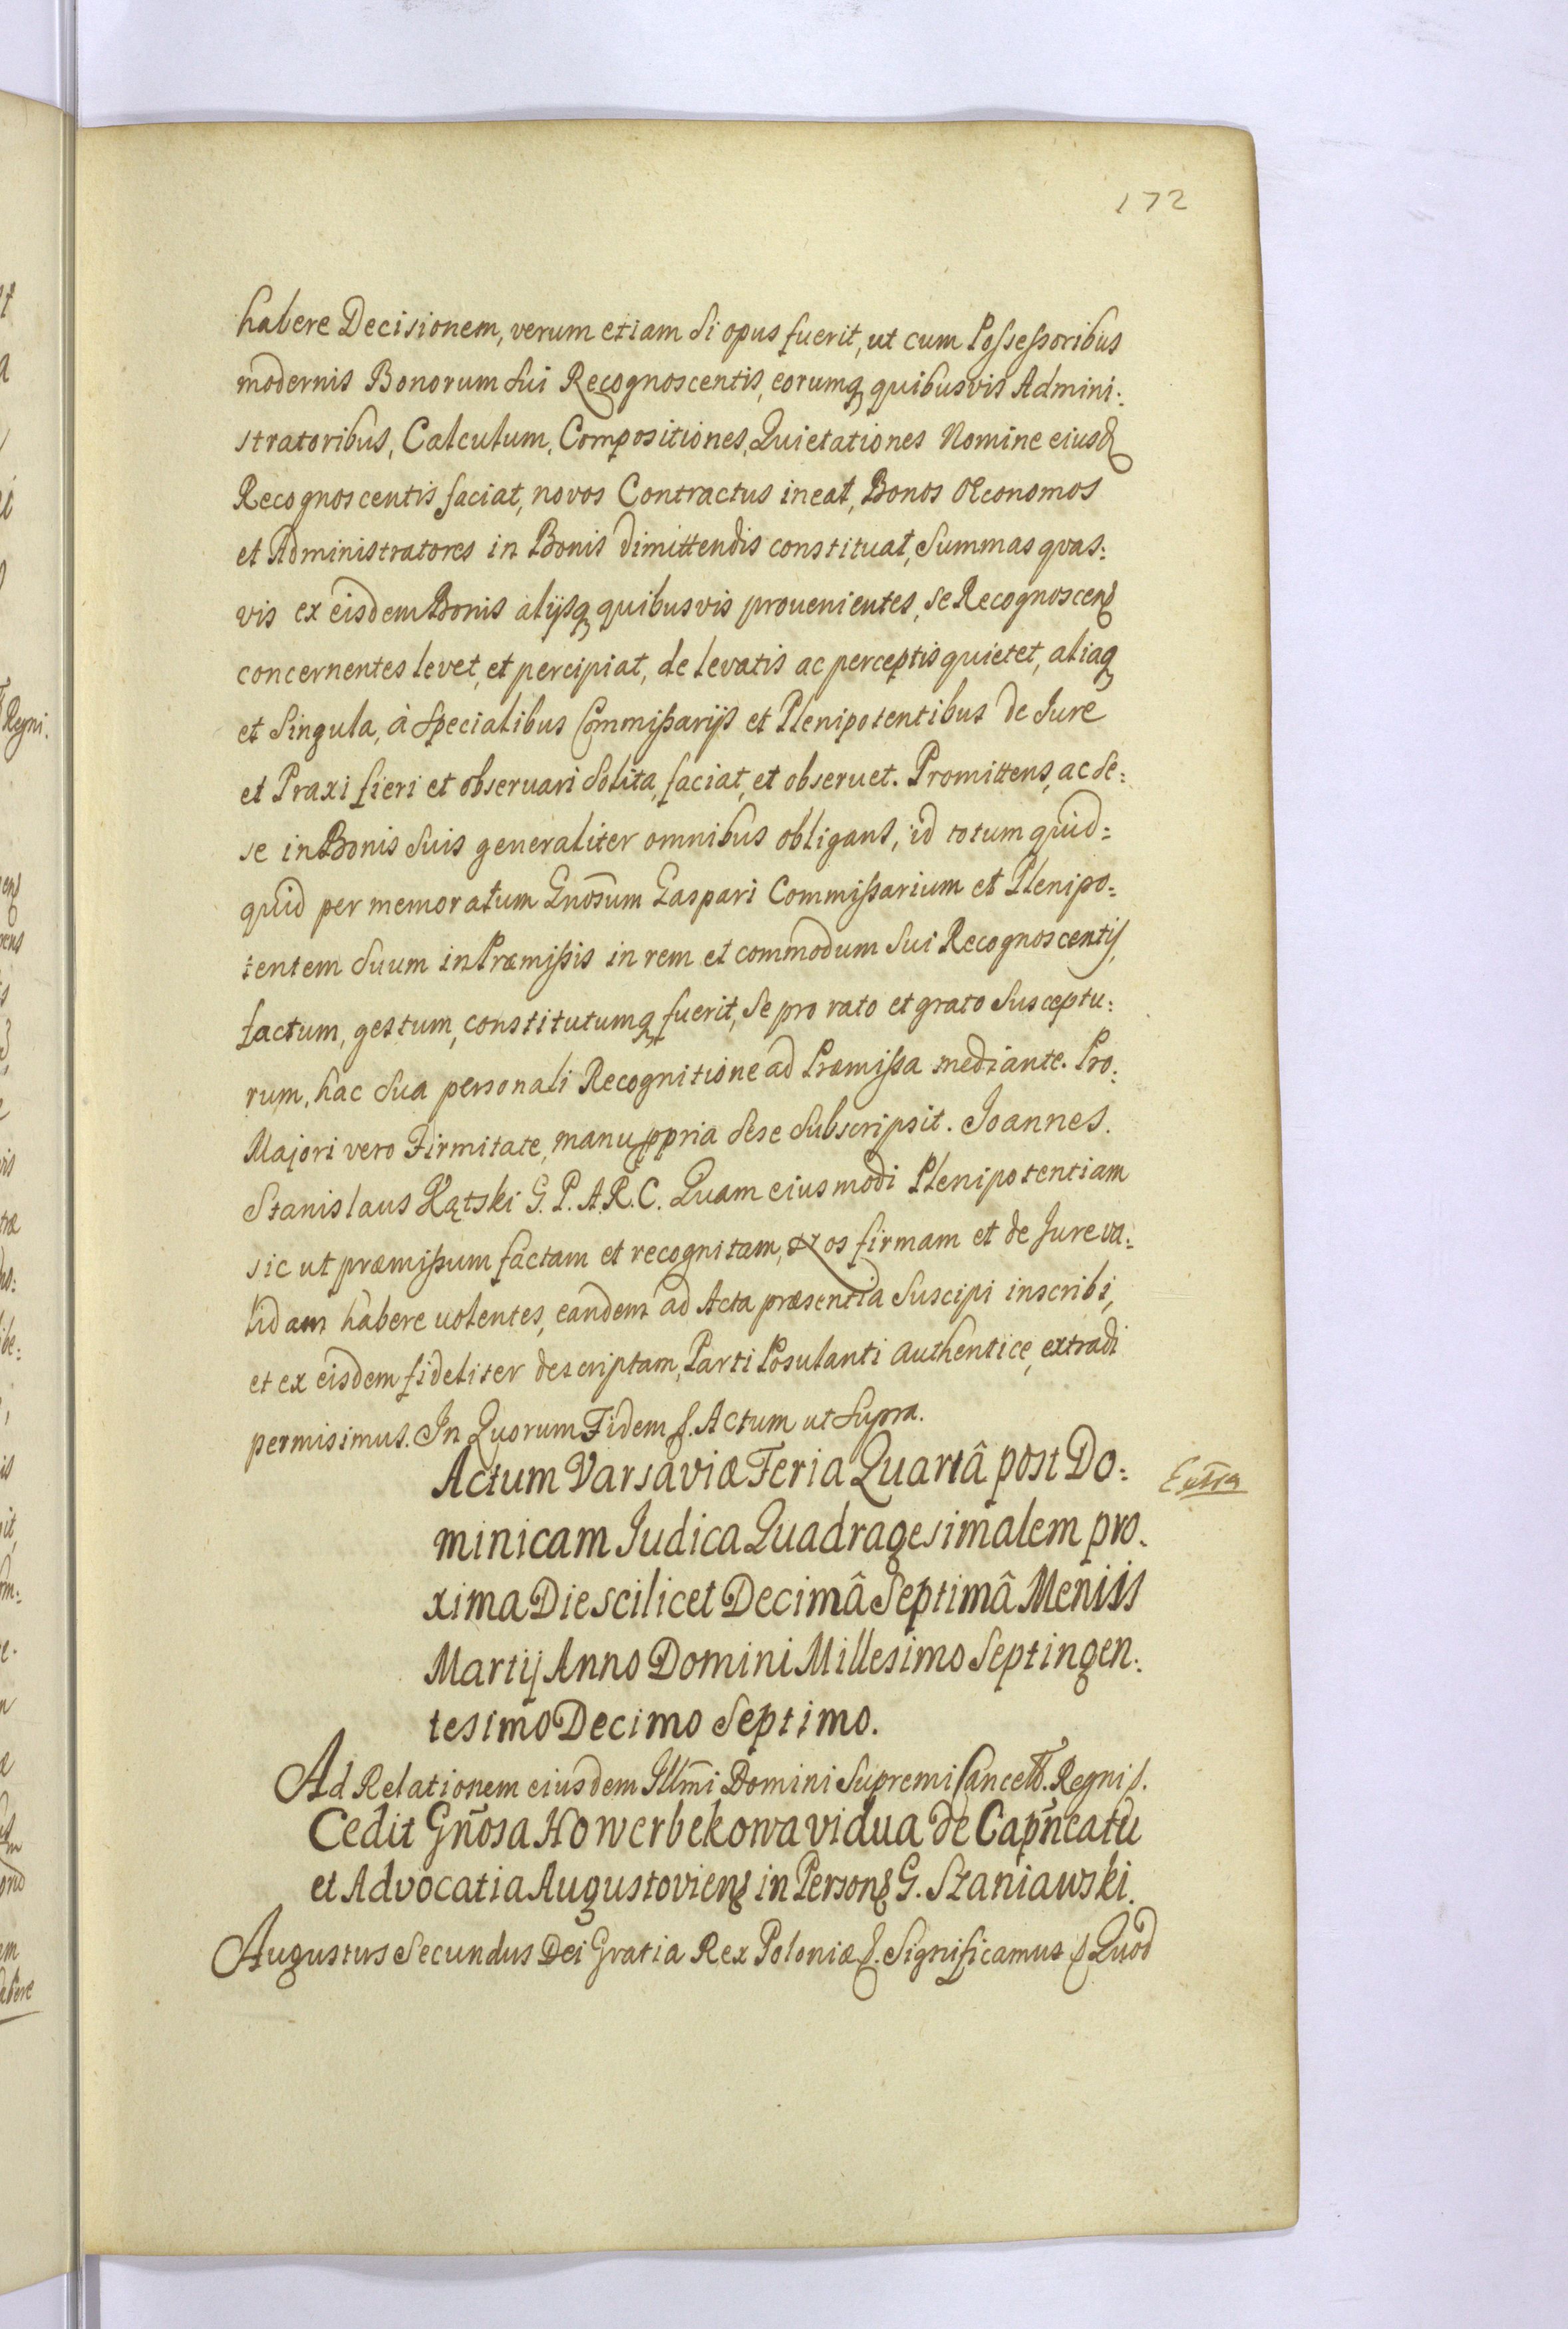 172
habere Decisionem, verum etiam si opus fuerit, ut cum Possessoribus
modernis Bonorum sui Recognoscentis, eorumq quibusvis Admini:
stratoribus, Calculum, Compositiones, Quietationes Nomine eiusd
Recognoscentis faciat, novos Contractus ineat, Bonos Oeconomos
et Administratores in Bonis dimittendis constituat, Summas qvas:
vis ex eisdem Bonis alijsq quibusvis prouenientes, se Recognoscen
concernentes levet, et percipiat, de levatis ac perceptis quietet, aliaq
et singula, à specialibus Commissarijs et Plenipotentibus de Iure
et Praxi fieri et observari solita, faciat, et obseruet. Promittens, ac se:
se in Bonis suis generaliter omnibus obligans, id totum quid=
quid per memoratum Gnõsum Gaspari Commissarium et Plenipo=
tentem suum in Præmissis in rem et commodum sui Recognoscentis,
factum, gestum, constitutumq fuerit, se pro rato et grato susceptu:
rum, hac sua personali Recognitione ad Præmissa mediante. Pro:
Majori vero Firmitate, manu ppria sese subscripsit. Joannes.
Stanislaus Kątski G. P. A. R. C. Quam eiusmodi Plenipotentiam
sic ut præmissum factam et recognitam, & os firmam et de Jure va:
lidam habere volentes, eandem ad Acta præsentia suscipi inscribi,
et ex eisdem fideliter descriptam, Parti Posulanti authentice, extradi
permisimus. In Quorum Fidem &. Actum ut supra.
Actum Varsaviæ Feria Quartâ post Do:
minicam Judica Quadragesimalem pro.
xima Die scilicet Decimâ Septimâ Mensis
Martij Anno Domini Millesimo Septingen:
tesimo Decimo Septimo.
Ad Relationem eiusdem Illm̃i Domini Supremi Cancell. Regni &.
Cedit Gñosa Howerbekowa vidua de Capñeatu
et Advocatia Augustovien in Person G. Szaniawski.
Augustus Secundus Dei Gratia Rex Poloniæ &. Significamus & Quod